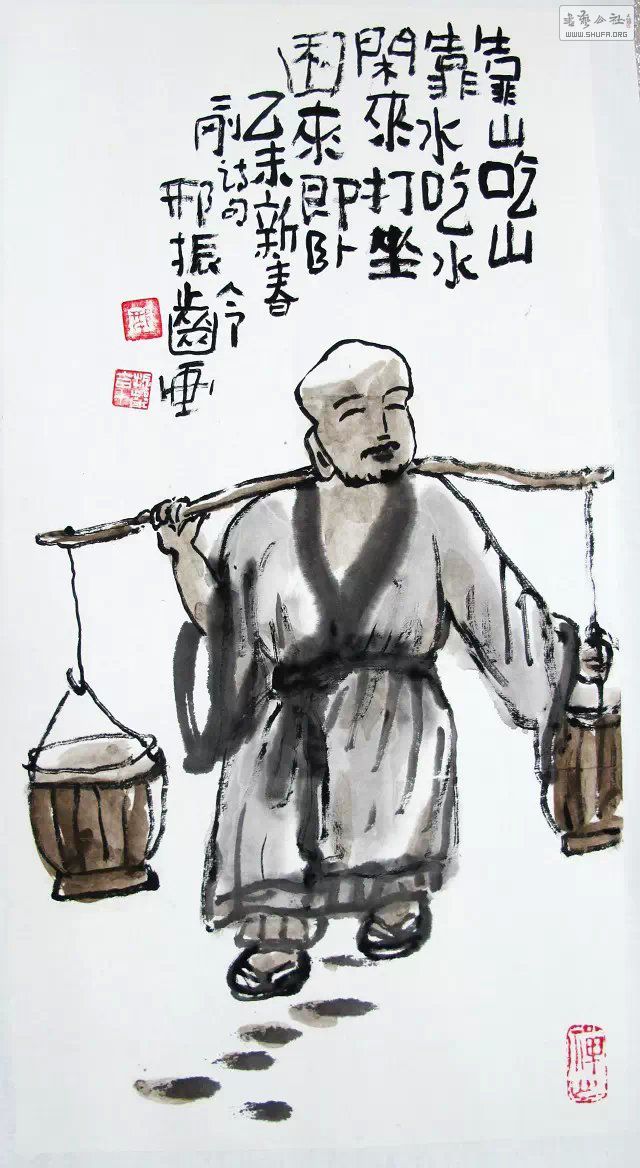 靠山吃山
靠水吃水
閑來打坐
困來即卧
乙未新春
诗句
邢振齡画
书艺公社
WWW.SHUFA.ORG